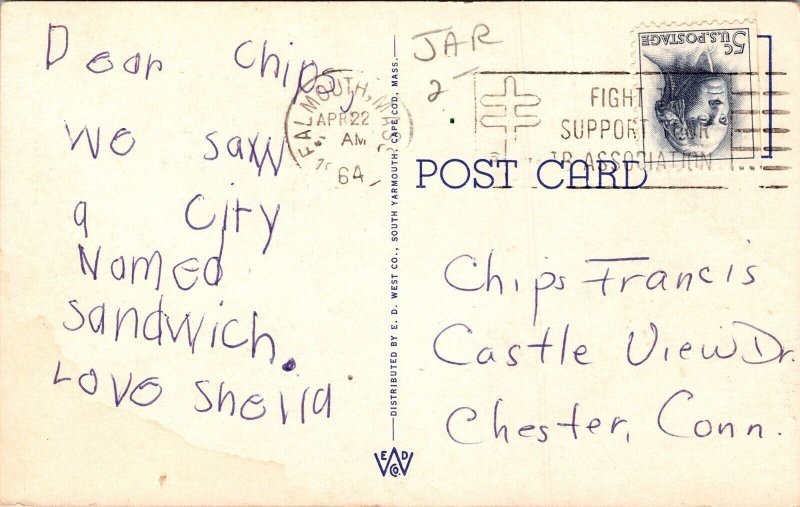 Dear Chips,
We saw
a City
Named
Sandwich.
Love Sheila
JAR
2-
FALMOUTH, MASS.
APR 22
AM
1964
FIGHT TB
SUPPORT YOUR
TB ASSOCIATION
5c
U.S. POSTAGE
POST CARD
Chips Francis
Castle View Dr.
Chester, Conn.
DISTRIBUTED BY E. D. WEST CO., SOUTH YARMOUTH, CAPE COD, MASS.
E D
W
CO.